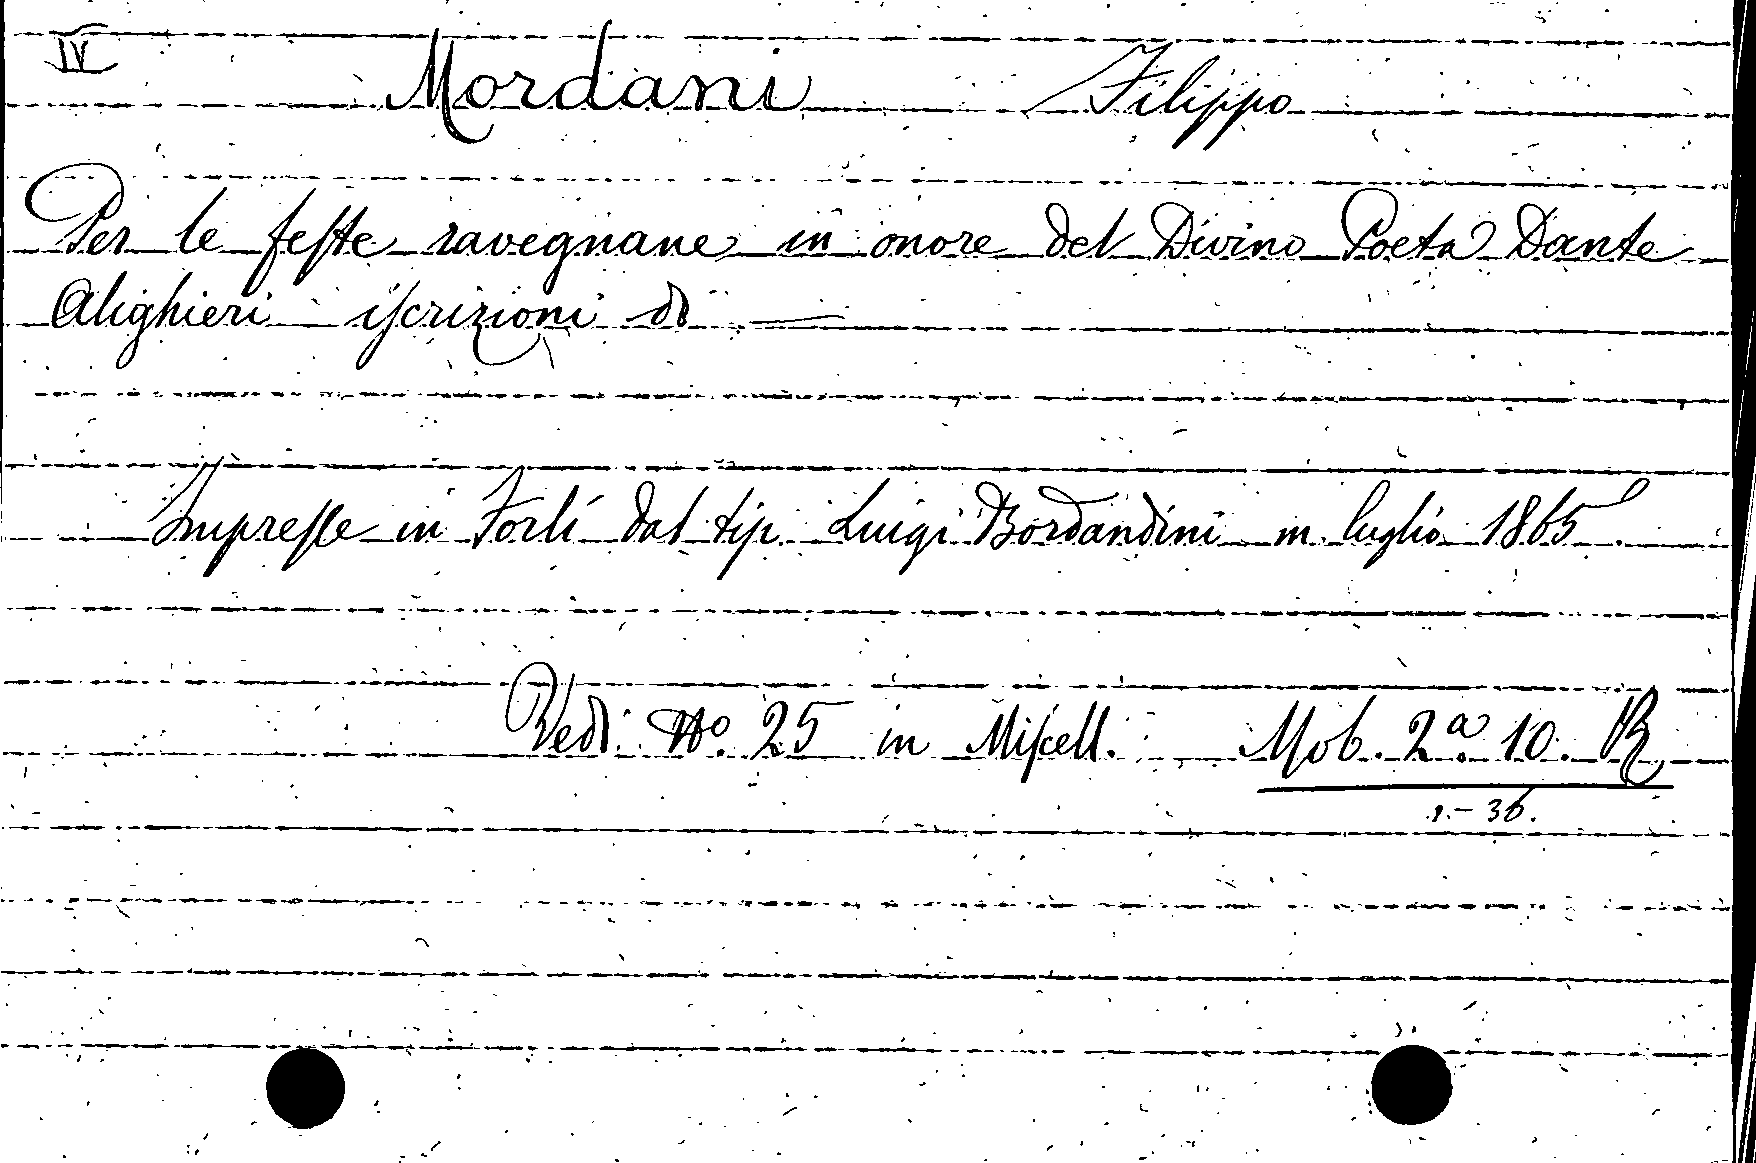 IV
Mordani Filippo
Per le feste ravegnane in onore del Divino Poeta Dante
Alighieri iscrizioni di —
Impresse in Forlí dal tip. Luigi Bordandini in luglio 1865.
Vedi No. 25 in Miscell. Mob. 2a. 10. R
36.